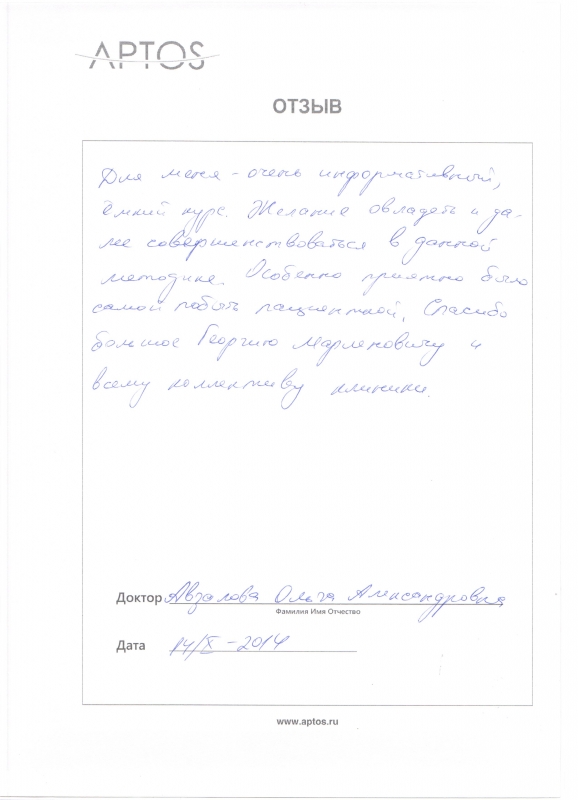 APTOS
ОТЗЫВ
Для меня - очень информативный,
ёмкий курс. Желание овладеть и да-
лее совершенствоваться в данной
методике. Особенно приятно было
самой побыть пациенткой. Спасибо
большое Георгию Марленовичу и
всему коллективу клиники.
Доктор Авзалова Ольга Александровна
Фамилия Имя Отчество
Дата 14/X - 2014
www.aptos.ru